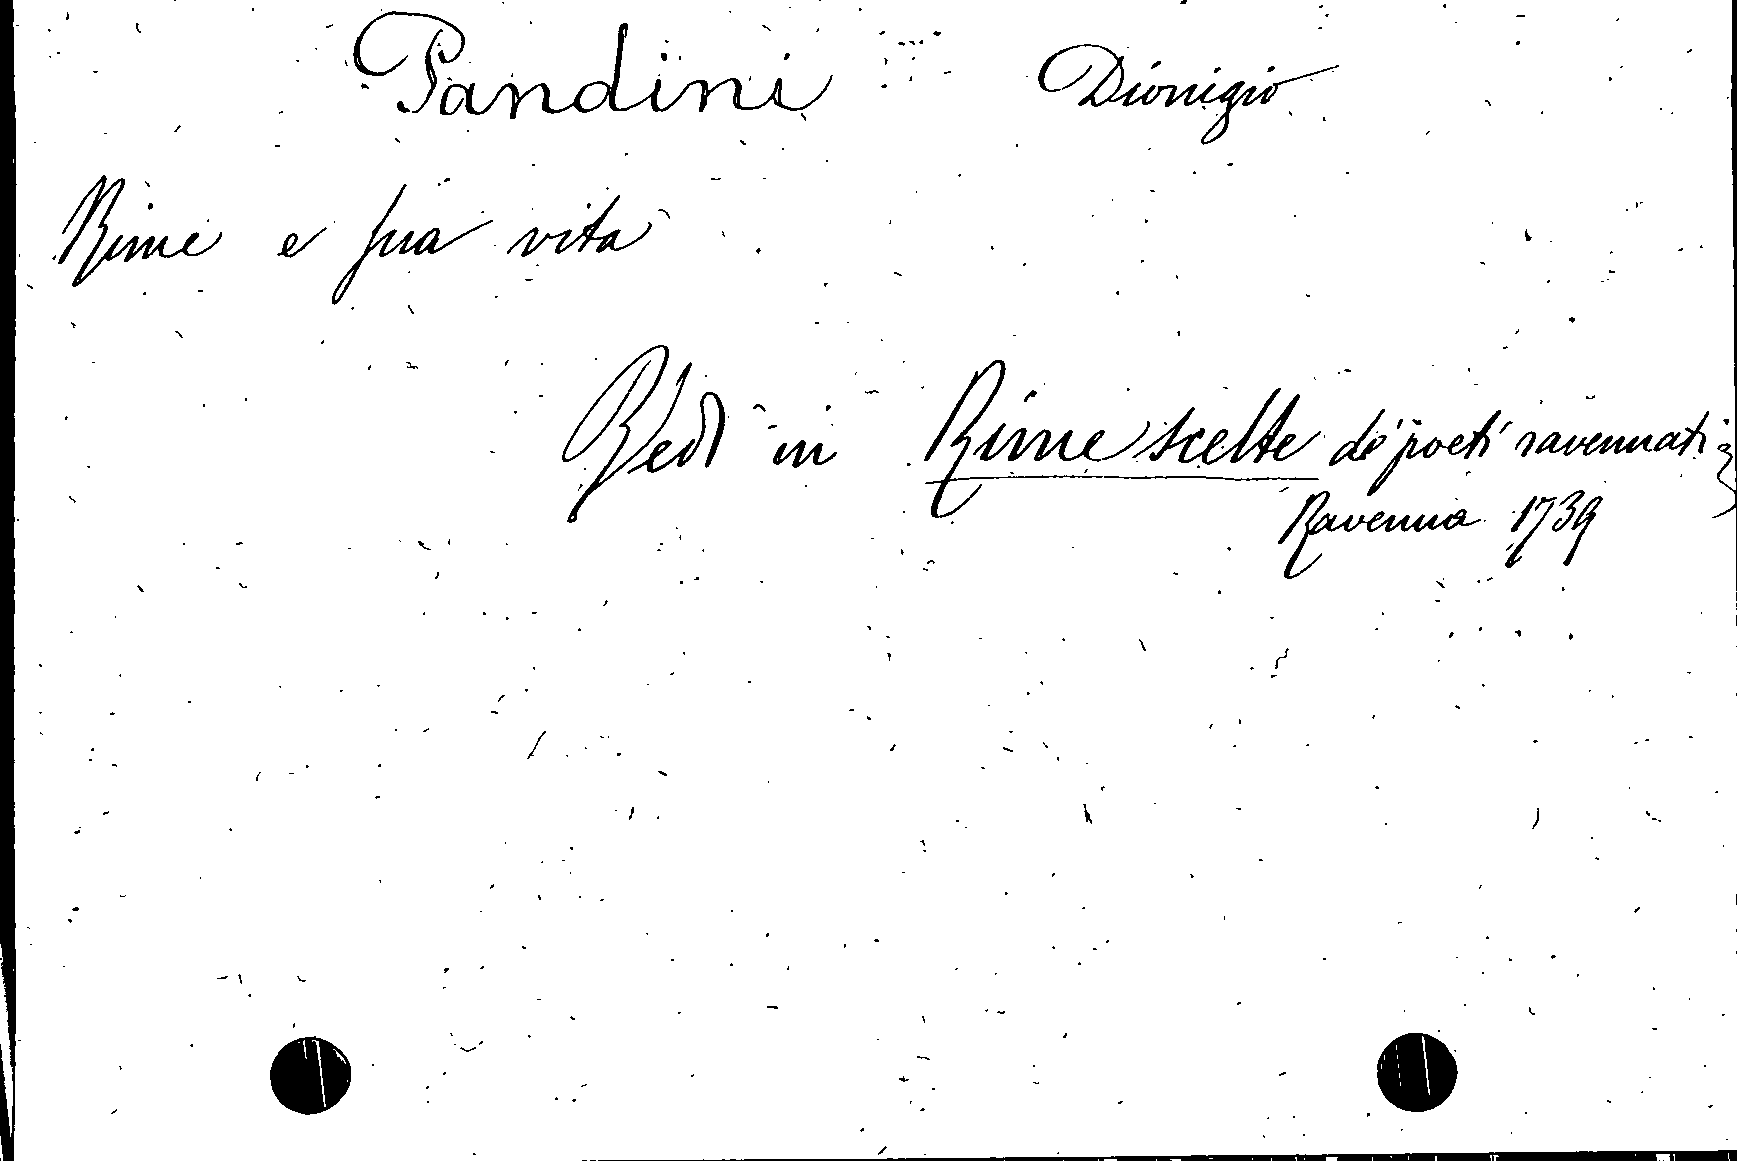 Pandini Dionigio
Rime e sua vita
Vedi in Rime scelte de' poeti ravennati
Ravenna 1739